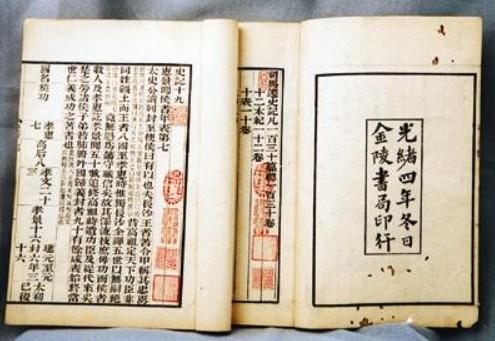 光緒四年冬日
金陵書局印行
司馬遷史記凡一百三十篇總一百三十卷
十二本紀一十二卷
十表一十卷
史記十九
惠景閒侯者年表第七
太史公讀列封至便侯曰有以也夫長沙王者著令甲稱其忠焉
昔高祖定天下功臣非
同姓疆土而王者八國至孝惠時唯獨長沙全禪五世以無嗣絕
竟無過爲藩守職信矣故其澤流枝庶毋功而侯者
數人及孝惠訖孝景閒五十載追修高祖時遺功臣及從代來吳
楚之勞諸侯子弟若肺腑外國歸義封者九十有餘咸表始終當
世仁義成功之著者也
國名
侯功
孝惠七
高后八
孝文二十
孝景十六
建元至元封六年三
十六
太初已後